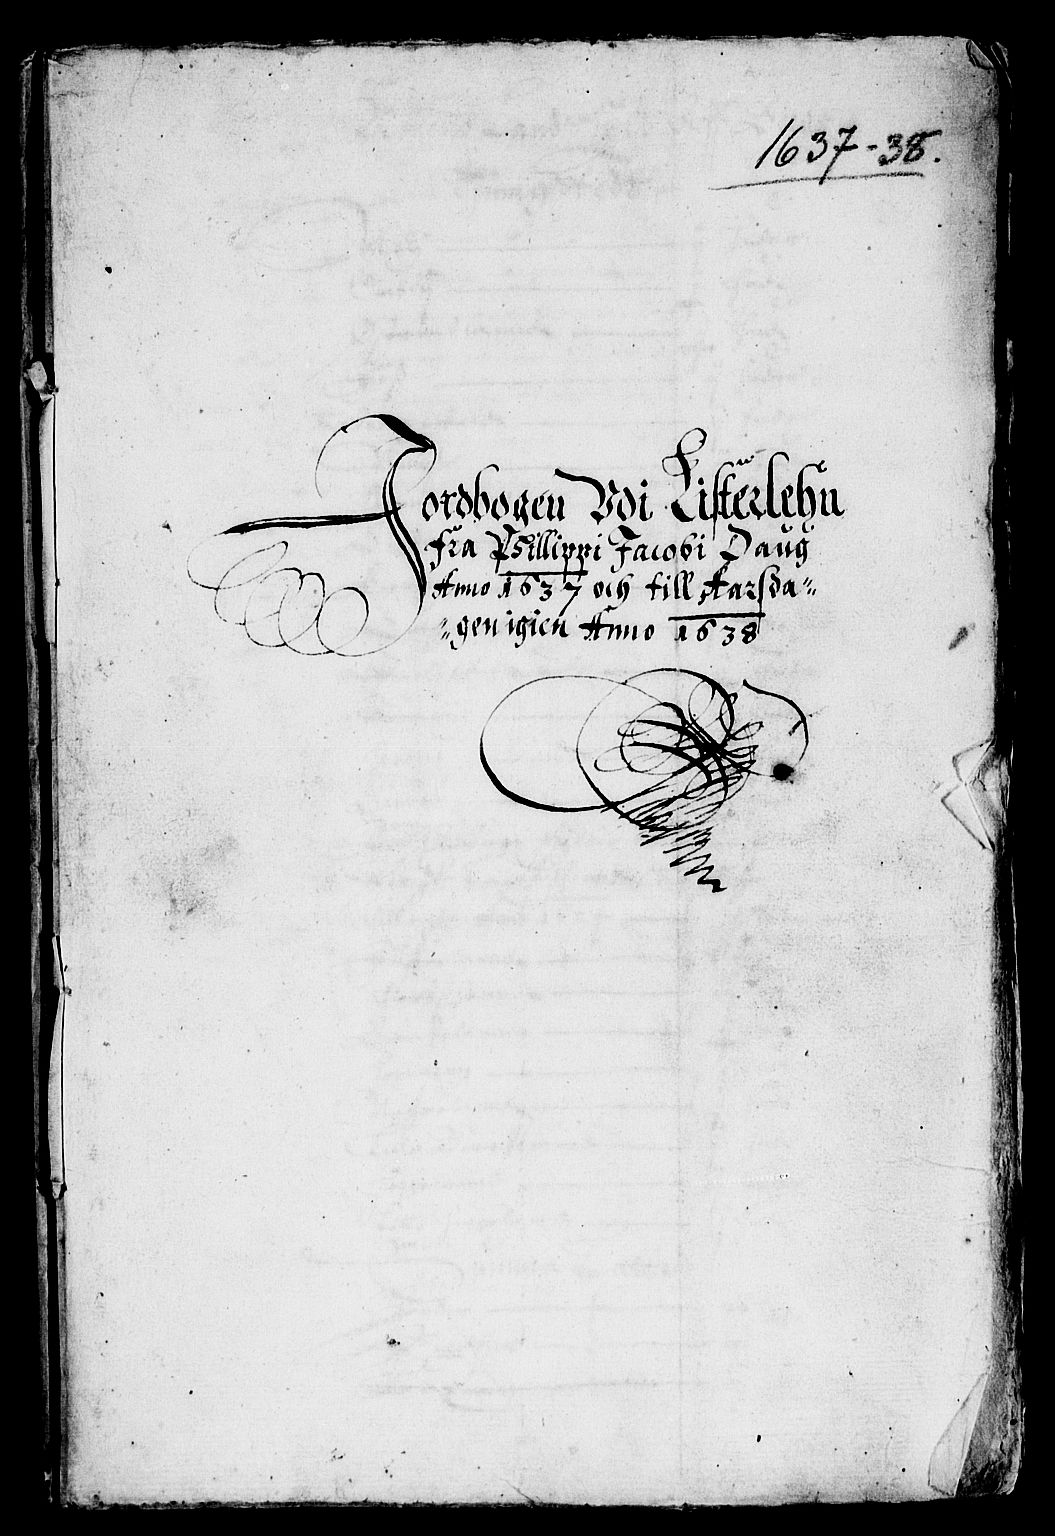 1637-38.
Jordbogen Vdi Listerlehn
fra Phillippi Jacobi Daug
Anno 1637 och till Aarsda=
=gen igien Anno 1638